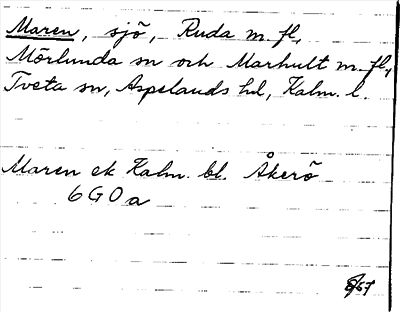 Maren, sjö, Ruda m. fl,
Mörlunda sn och Marhult m. fl,
Tveta sn, Aspelands hd, Kalm. l.
Maren ek Kalm. bl. Åkerö
6 G O a